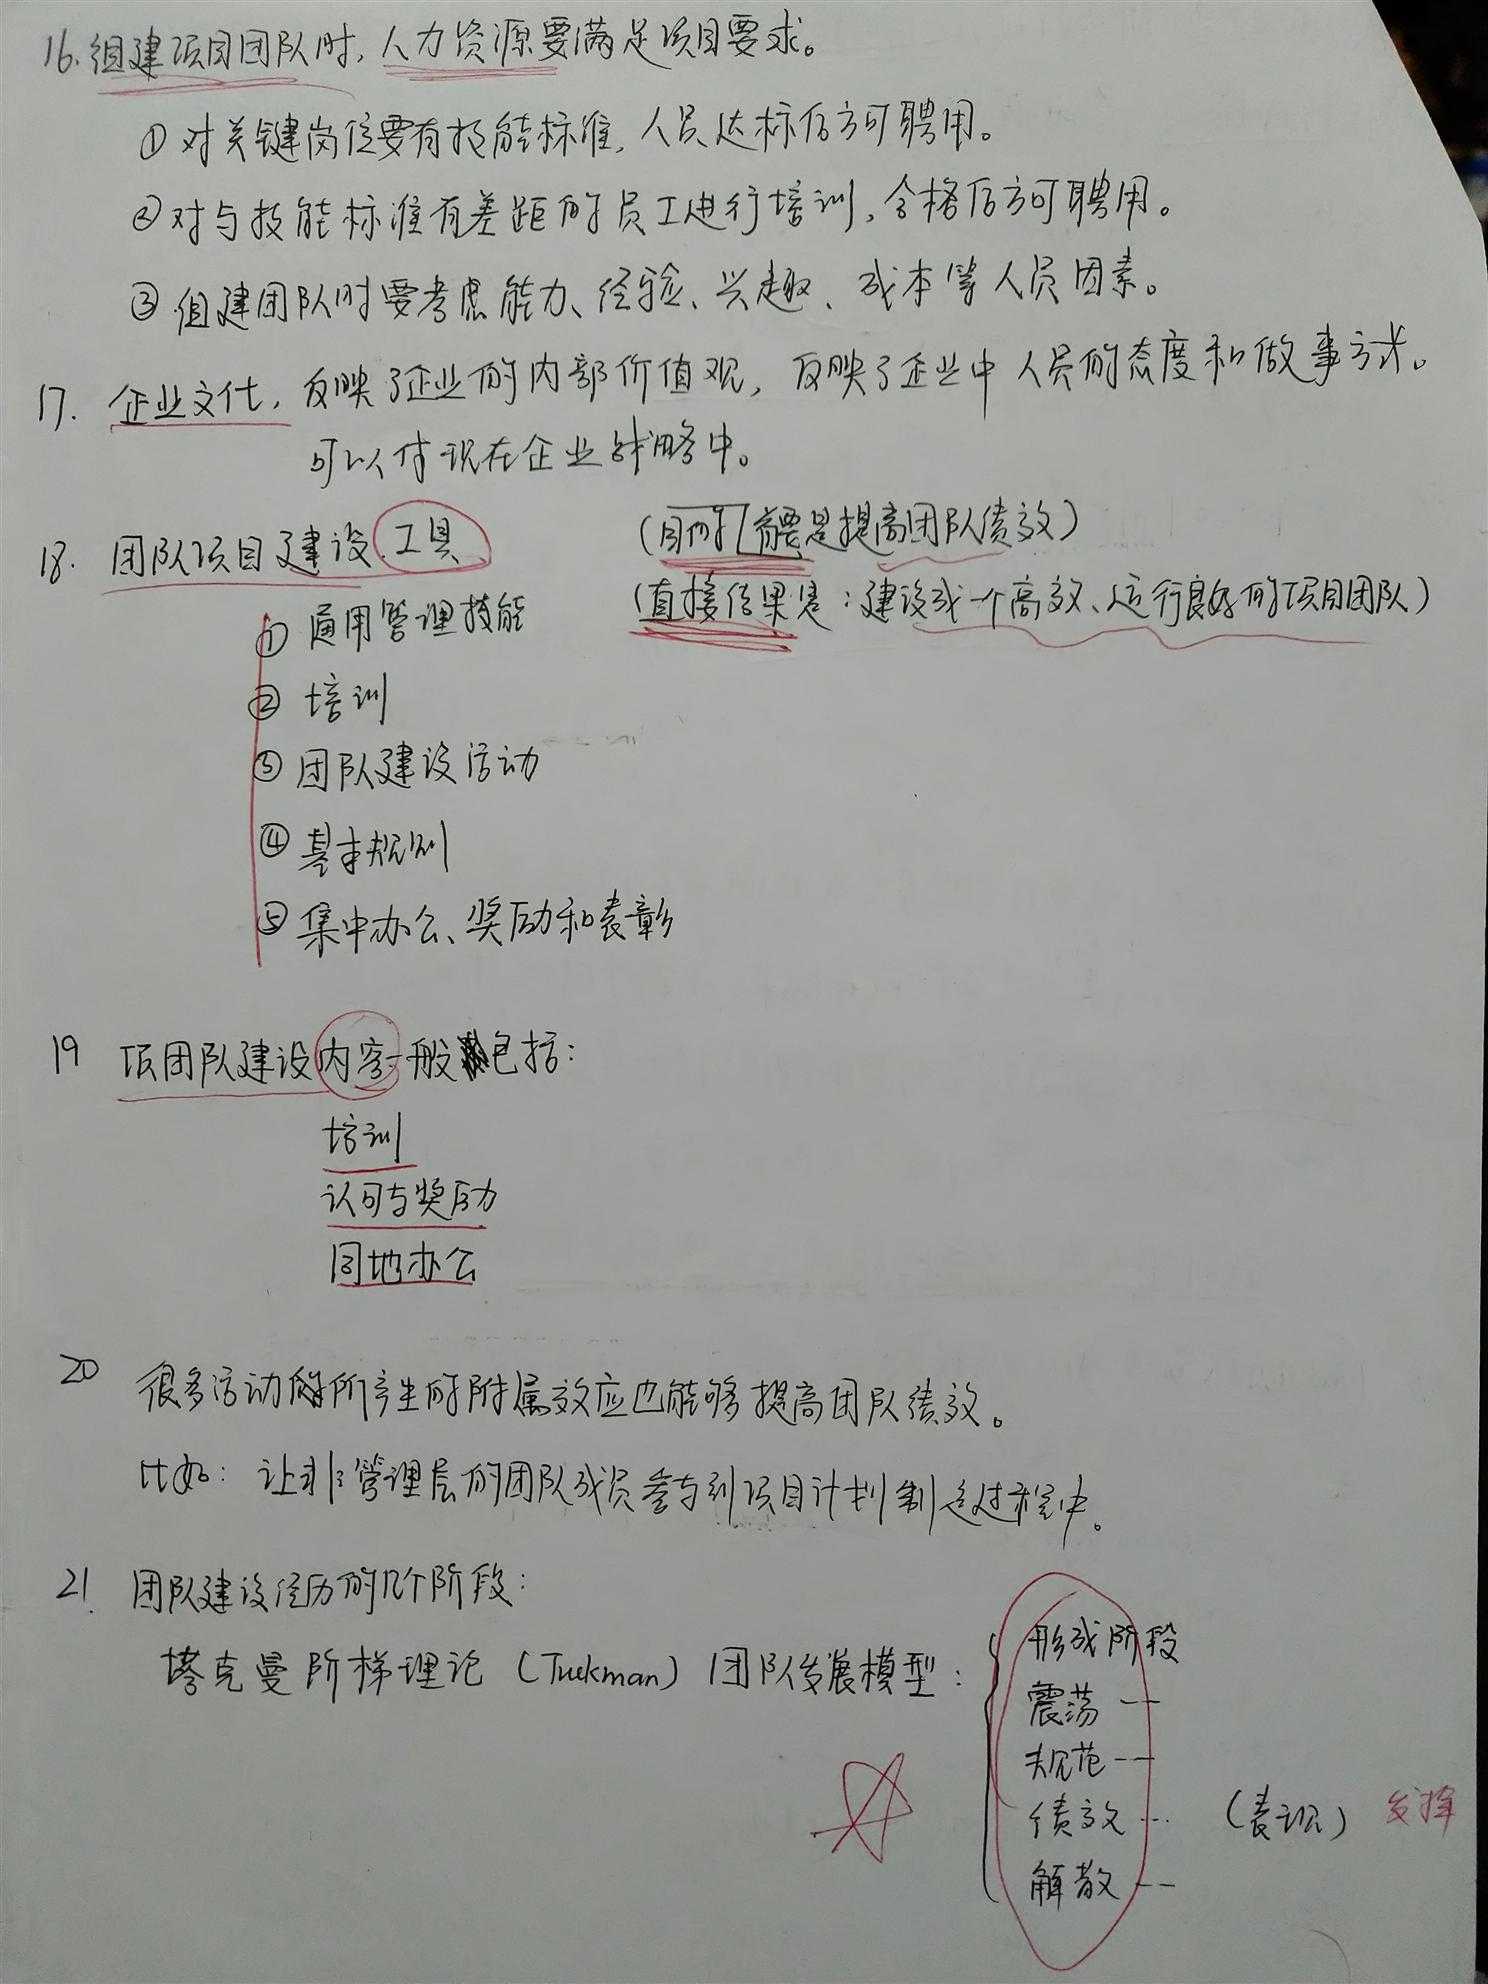 16. 组建项目团队时, 人力资源要满足项目要求。
① 对关键岗位要有技能标准, 人员达标后方可聘用。
② 对与技能标准有差距的员工进行培训, 合格后方可聘用。
③ 组建团队时要考虑能力、经验、兴趣、成本等人员因素。
17. 企业文化, 反映了企业的内部价值观, 反映了企业中人员的态度和做事方式。
可以体现在企业战略中。
18. 团队项目建设工具 (目的 需要是提高团队绩效)
(直接结果是: 建设成一个高效、运行良好的项目团队)
① 通用管理技能
② 培训
③ 团队建设活动
④ 基本规则
⑤ 集中办公、奖励和表彰
19 项团队建设内容一般包括:
培训
认可与奖励
同地办公
20 很多活动所产生的附属效应也能够提高团队绩效。
比如: 让非管理层的团队成员参与到项目计划制定过程中。
21. 团队建设经历的几个阶段:
塔克曼阶梯理论 (Tuckman) 团队发展模型:
形成阶段
震荡 --
规范 ---
绩效 ... (表现) 发挥
解散 ---